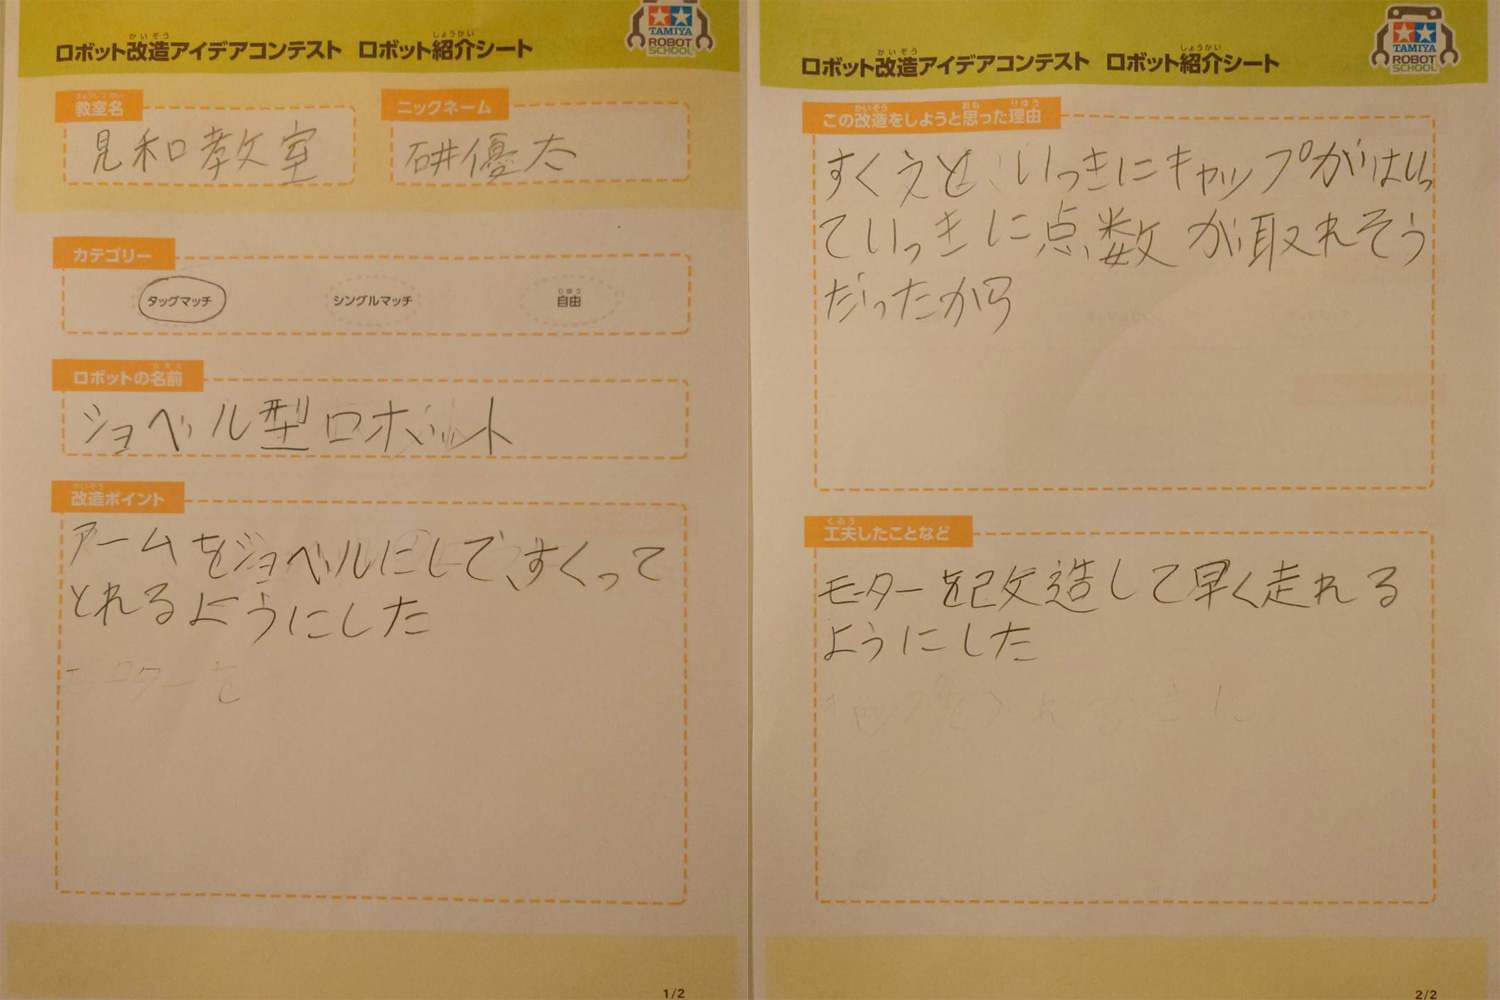 ロボット改造アイデアコンテスト ロボット紹介シート
かいぞう
しょうかい
TAMIYA
ROBOT
SCHOOL
教室名
見和教室
ニックネーム
研優太
カテゴリー
タッグマッチ
シングルマッチ
じゆう
自由
なまえ
ロボットの名前
ショベル型ロボット
かいぞう
改造ポイント
アームをショベルにして、すくって
とれるようにした
1/2
ロボット改造アイデアコンテスト ロボット紹介シート
かいぞう
しょうかい
TAMIYA
ROBOT
SCHOOL
かいぞう おも りゆう
この改造をしようと思った理由
すくえど、いっきにキャップがはいっ
ていっきに点数が取れそう
だったから
くふう
工夫したことなど
モーターを改造して早く走れる
ようにした
2/2